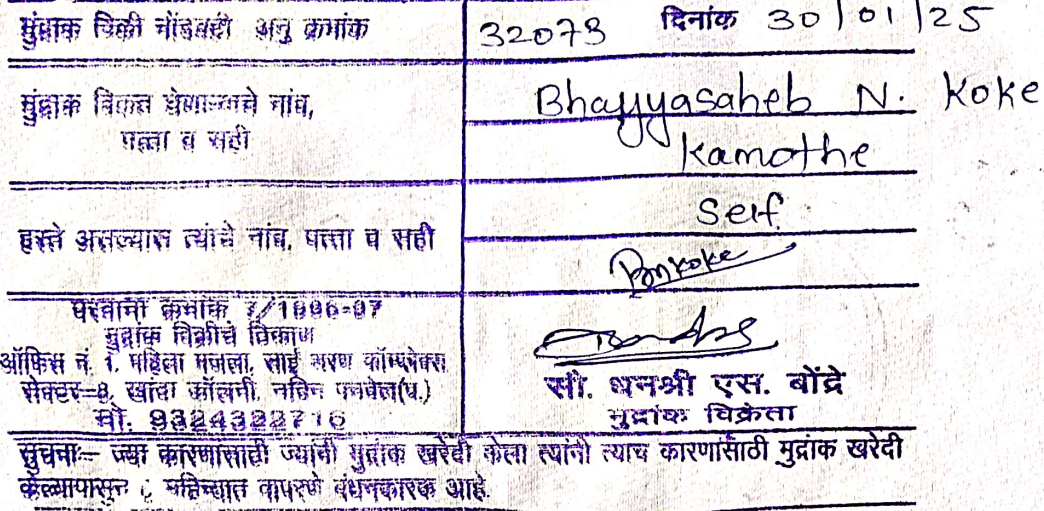 मुंद्राक विक्री नोंदवही अनु क्रमांक 32073 दिनांक 30/01/25
मुंद्राक विकत घेणाऱ्याचे नांव, Bhayyasaheb N. Koke
पत्ता व सही Kamothe
Self
हस्ते असल्यास त्यांचे नांव, पत्ता व सही
Bnkoke
परवाना क्रमांक 7/1996-97
मुद्रांक विक्रीचे ठिकाण
ऑफिस नं. 1, पहिला मजला, साई शरण कॉम्प्लेक्स
सेक्टर-8, खांदा कॉलनी, नविन पनवेल(प.) सौ. धनश्री एस. बोंद्रे
मो. 9324322716 मुद्रांक विक्रेता
सुचना:- ज्या कारणांसाठी ज्यांनी मुद्रांक खरेदी केला त्यांनी त्याच कारणांसाठी मुद्रांक खरेदी
केल्यापासून महिन्यात वापरणे बंधनकारक आहे.